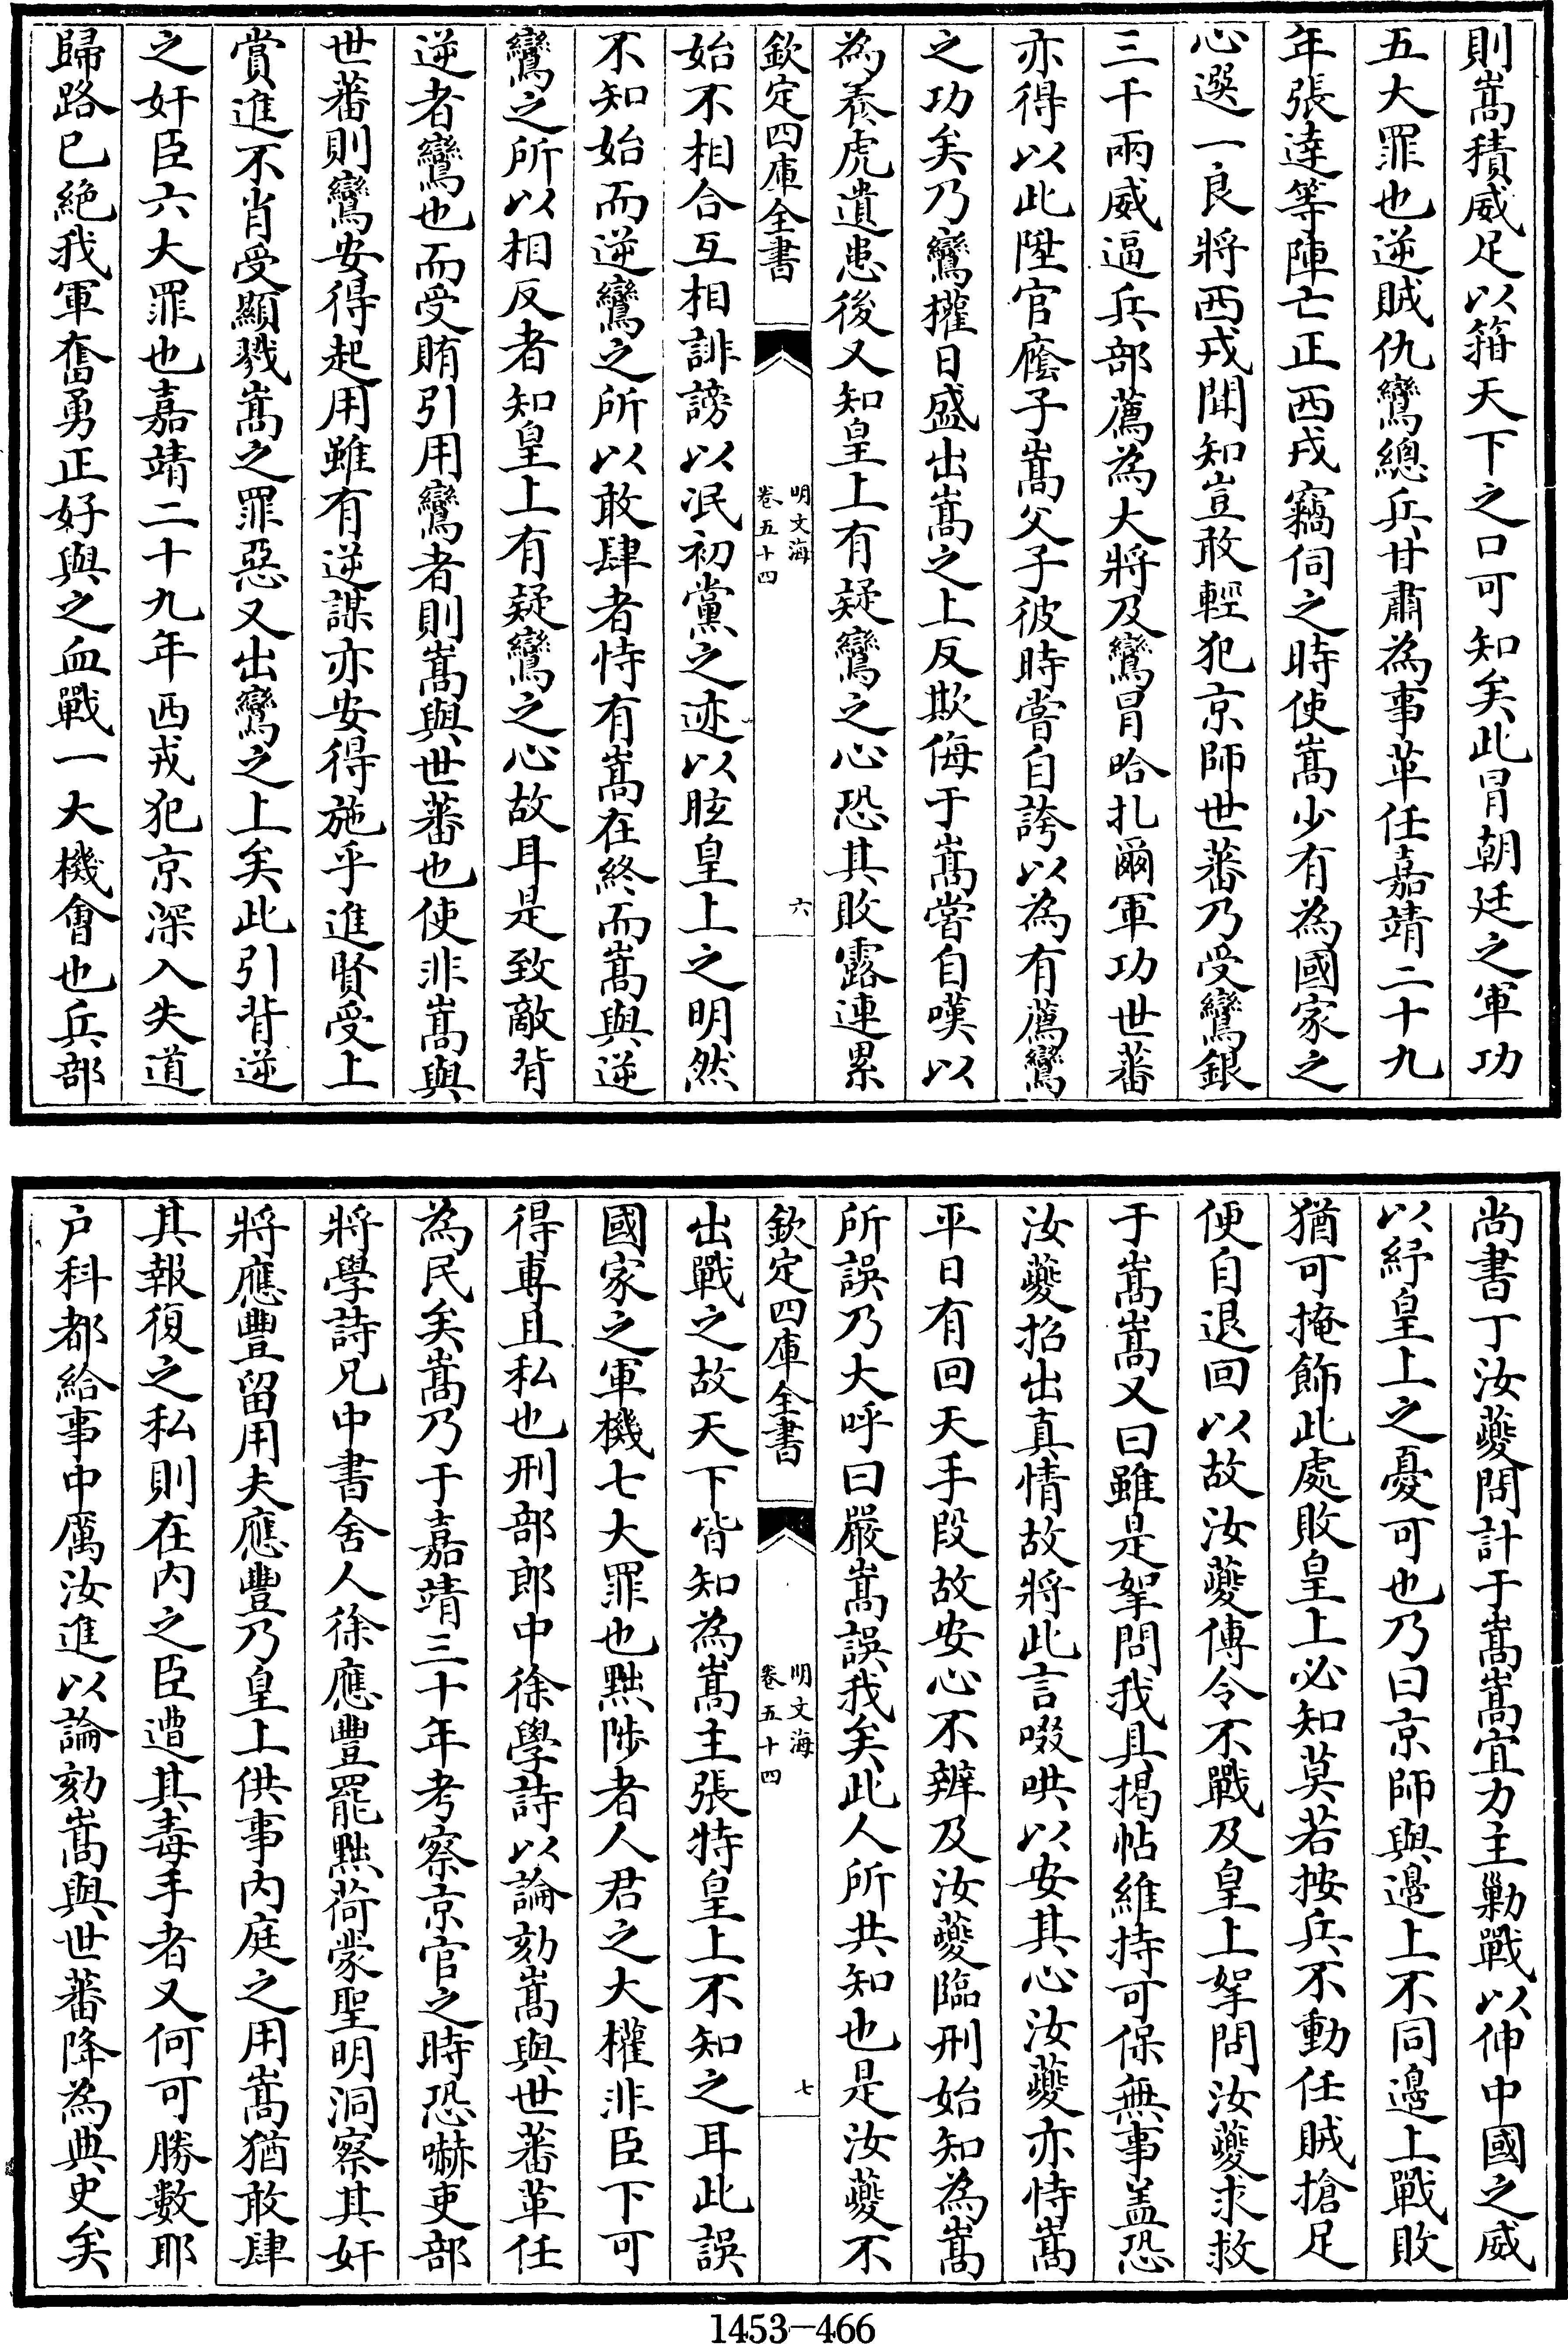 則嵩積威足以箝天下之口可知矣此冒朝廷之軍功
五大罪也逆賊仇鸞總兵甘肅為事革任嘉靖二十九
年張達等陣亡正西戎竊伺之時使嵩少有為國家之
心選一良將西戎聞知豈敢輕犯京師世蕃乃受鸞銀
三千兩威逼兵部薦為大將及鸞冒哈扎爾軍功世蕃
亦得以此陞官廕子嵩父子彼時嘗自誇以為有薦鸞
之功矣乃鸞權日盛出嵩之上反欺侮于嵩嘗自嘆以
為養虎遺患後又知皇上有疑鸞之心恐其敗露連累
欽定四庫全書
明文海
卷五十四
六
始不相合互相誹謗以泯初黨之迹以眩皇上之明然
不知始而逆鸞之所以敢肆者恃有嵩在終而嵩與逆
鸞之所以相反者知皇上有疑鸞之心故耳是致敵背
逆者鸞也而受賄引用鸞者則嵩與世蕃也使非嵩與
世蕃則鸞安得起用雖有逆謀亦安得施乎進賢受上
賞進不肖受顯戮嵩之罪惡又出鸞之上矣此引背逆
之奸臣六大罪也嘉靖二十九年西戎犯京深入失道
歸路已絶我軍奮勇正好與之血戰一大機會也兵部
尚書丁汝夔問計于嵩嵩宜力主勦戰以伸中國之威
以紓皇上之憂可也乃曰京師與邊上不同邊上戰敗
猶可掩飾此處敗皇上必知莫若按兵不動任賊搶足
便自退回以故汝夔傳令不戰及皇上拏問汝夔求救
于嵩嵩又曰雖是拏問我具揭帖維持可保無事盖恐
汝夔招出真情故將此言啜哄以安其心汝夔亦恃嵩
平日有回天手段故安心不辨及汝夔臨刑始知為嵩
所誤乃大呼曰嚴嵩誤我矣此人所共知也是汝夔不
欽定四庫全書
明文海
卷五十四
七
出戰之故天下皆知為嵩主張特皇上不知之耳此誤
國家之軍機七大罪也黜陟者人君之大權非臣下可
得專且私也刑部郎中徐學詩以論劾嵩與世蕃革任
為民矣嵩乃于嘉靖三十年考察京官之時恐嚇吏部
將學詩兄中書舍人徐應豐罷黜荷蒙聖明洞察其奸
將應豐留用夫應豐乃皇上供事内庭之用嵩猶敢肆
其報復之私則在内之臣遭其毒手者又何可勝數耶
户科都給事中厲汝進以論劾嵩與世蕃降為典史矣
1453-466